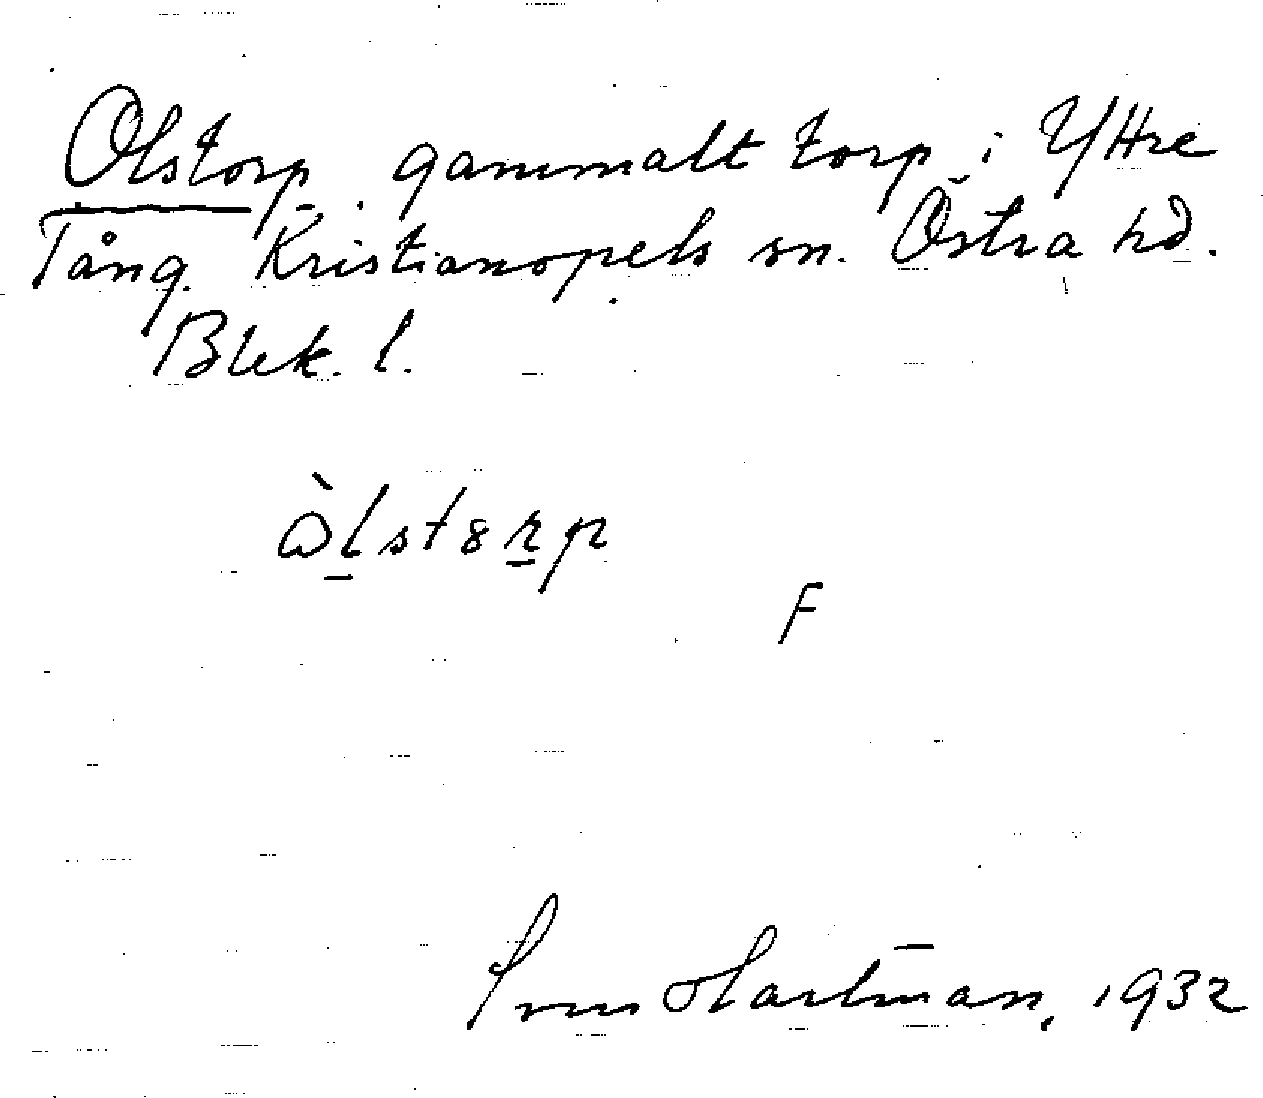 Olstorp gammalt torp i Yttre
Tång. Kristianopels sn. Östra hd.
Blek. l.
F
Sven Hartman, 1932